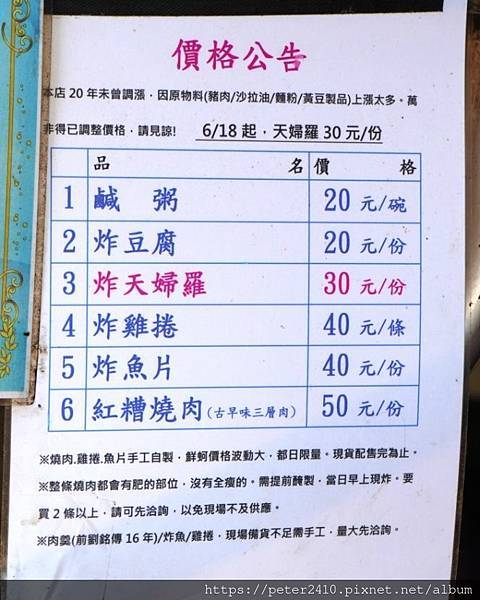 價格公告
本店 20 年未曾調漲，因原物料(豬肉/沙拉油/麵粉/黃豆製品)上漲太多。萬
非得已調整價格，請見諒! 6/18 起，天婦羅 30 元/份
品 名 價 格
1 鹹 粥 20 元/碗
2 炸豆腐 20 元/份
3 炸天婦羅 30 元/份
4 炸雞捲 40 元/條
5 炸魚片 40 元/份
6 紅糟燒肉(古早味三層肉) 50 元/份
※燒肉.雞捲.魚片手工自製，鮮蚵價格波動大，都日限量。現貨配售完為止。
※整條燒肉都會有肥的部位，沒有全瘦的。需提前醃製，當日早上現炸。要
買 2 條以上，請可先洽詢，以免現場不及供應。
※肉羹(前劉銘傳 16 年)/炸魚/雞捲，現場備貨不足需手工，量大先洽詢。
https://peter2410.pixnet.net/album